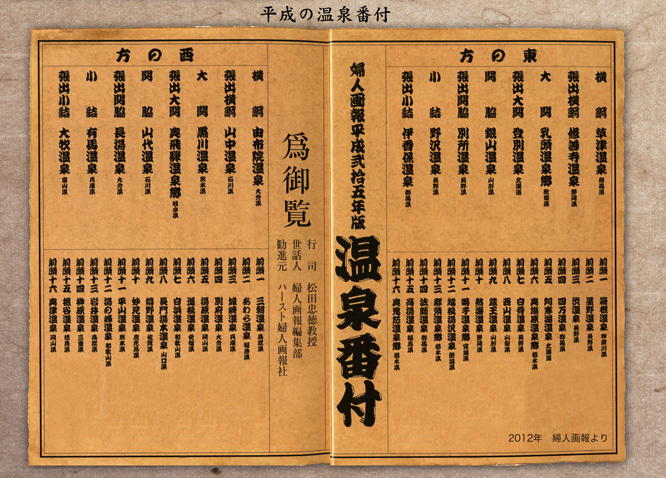 平成の温泉番付
東の方
横綱 草津温泉 群馬県
張出横綱 修善寺温泉 静岡県
大関 乳頭温泉郷 秋田県
張出大関 登別温泉 北海道
関脇 銀山温泉 山形県
張出関脇 別所温泉 長野県
小結 野沢温泉 長野県
張出小結 伊香保温泉 群馬県
前頭一 箱根温泉 神奈川県
前頭二 星野温泉 長野県
前頭三 渋温泉 長野県
前頭四 四万温泉 群馬県
前頭五 阿寒湖温泉 北海道
前頭六 奥塩原温泉 栃木県
前頭七 白骨温泉 長野県
前頭八 西山温泉 山梨県
前頭九 蔵王温泉 山形県
前頭十 熱海温泉 静岡県
前頭十一 鳴子温泉郷 宮城県
前頭十二 越後湯沢温泉 新潟県
前頭十三 那須温泉郷 栃木県
前頭十四 法師温泉 群馬県
前頭十五 湯温泉 福島県
前頭十六 奥鬼怒温泉郷 栃木県
婦人画報平成弐拾五年版
温泉番付
2012年 婦人画報より
為御覧
行司 松田忠徳教授
世話人 婦人画報編集部
勧進元 ハースト婦人画報社
西の方
横綱 由布院温泉 大分県
張出横綱 山中温泉 石川県
大関 黒川温泉 熊本県
張出大関 奥飛騨温泉郷 岐阜県
関脇 山代温泉 石川県
張出関脇 長湯温泉 大分県
小結 有馬温泉 兵庫県
張出小結 大牧温泉 富山県
前頭一 三朝温泉 鳥取県
前頭二 あわら温泉 福井県
前頭三 城崎温泉 兵庫県
前頭四 別府温泉 大分県
前頭五 湯原温泉 岡山県
前頭六 道後温泉 愛媛県
前頭七 白浜温泉 和歌山県
前頭八 長門湯本温泉 山口県
前頭九 嬉野温泉 佐賀県
前頭十 妙見温泉 鹿児島県
前頭十一 平山温泉 熊本県
前頭十二 湯の峰温泉 和歌山県
前頭十三 岩井温泉 鳥取県
前頭十四 榊原温泉 三重県
前頭十五 祖谷温泉 徳島県
前頭十六 奥津温泉 岡山県